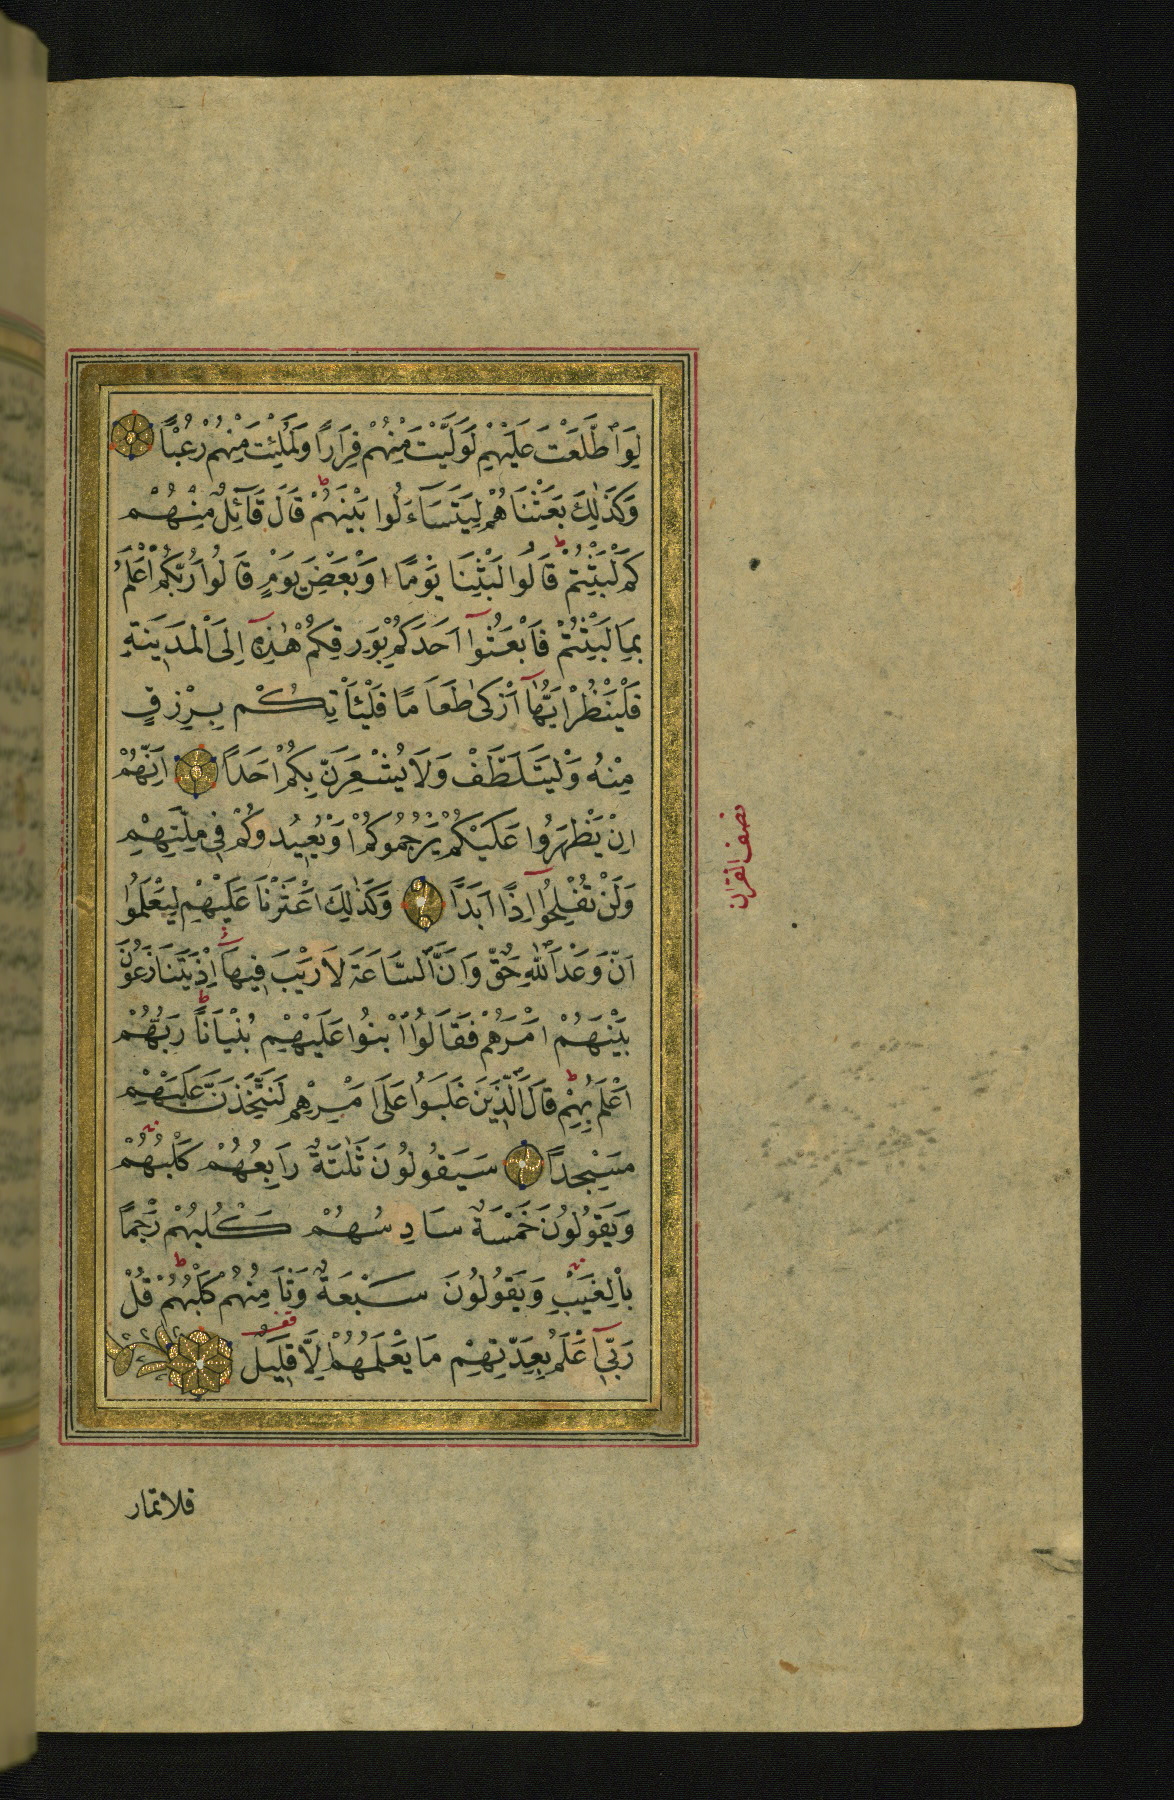 لَوِ اطَّلَعْتَ عَلَيْهِمْ لَوَلَّيْتَ مِنْهُمْ فِرَارًا وَلَمُلِئْتَ مِنْهُمْ رُعْبًا
وَكَذٰلِكَ بَعَثْنَاهُمْ لِيَتَسَآءَلُوا بَيْنَهُمْ ط قَالَ قَآئِلٌ مِنْهُمْ
كَمْ لَبِثْتُمْ ط قَالُوا لَبِثْنَا يَوْمًا اَوْ بَعْضَ يَوْمٍ قَالُوا رَبُّكُمْ اَعْلَمُ
بِمَا لَبِثْتُمْ فَابْعَثُوآ اَحَدَكُمْ بِوَرِقِكُمْ هٰذِهِٓ اِلَى الْمَدِينَةِ
فَلْيَنْظُرْ اَيُّهَآ اَزْكٰى طَعَامًا فَلْيَأْتِكُمْ بِرِزْقٍ
مِنْهُ وَلْيَتَلَطَّفْ وَلَا يُشْعِرَنَّ بِكُمْ اَحَدًا اِنَّهُمْ
اِنْ يَظْهَرُوا عَلَيْكُمْ يَرْجُمُوكُمْ اَوْ يُعِيدُوكُمْ فِي مِلَّتِهِمْ
وَلَنْ تُفْلِحُوآ اِذًا اَبَدًا وَكَذٰلِكَ اَعْثَرْنَا عَلَيْهِمْ لِيَعْلَمُوا
اَنَّ وَعْدَ اللّٰهِ حَقٌّ وَاَنَّ السَّاعَةَ لَا رَيْبَ فِيهَا اِذْ يَتَنَازَعُونَ
بَيْنَهُمْ اَمْرَهُمْ فَقَالُوا ابْنُوا عَلَيْهِمْ بُنْيَانًا ط رَبُّهُمْ
اَعْلَمُ بِهِمْ ط قَالَ الَّذِينَ غَلَبُوا عَلٰى اَمْرِهِمْ لَنَتَّخِذَنَّ عَلَيْهِمْ
مَسْجِدًا سَيَقُولُونَ ثَلٰثَةٌ رَابِعُهُمْ كَلْبُهُمْ
وَيَقُولُونَ خَمْسَةٌ سَادِسُهُمْ كَلْبُهُمْ رَجْمًا
بِالْغَيْبِ وَيَقُولُونَ سَبْعَةٌ وَثَامِنُهُمْ كَلْبُهُمْ ط قُلْ
رَبِّيٓ اَعْلَمُ بِعِدَّتِهِمْ مَا يَعْلَمُهُمْ اِلَّا قَلِيلٌ
نصف القرآن
فلا تمار